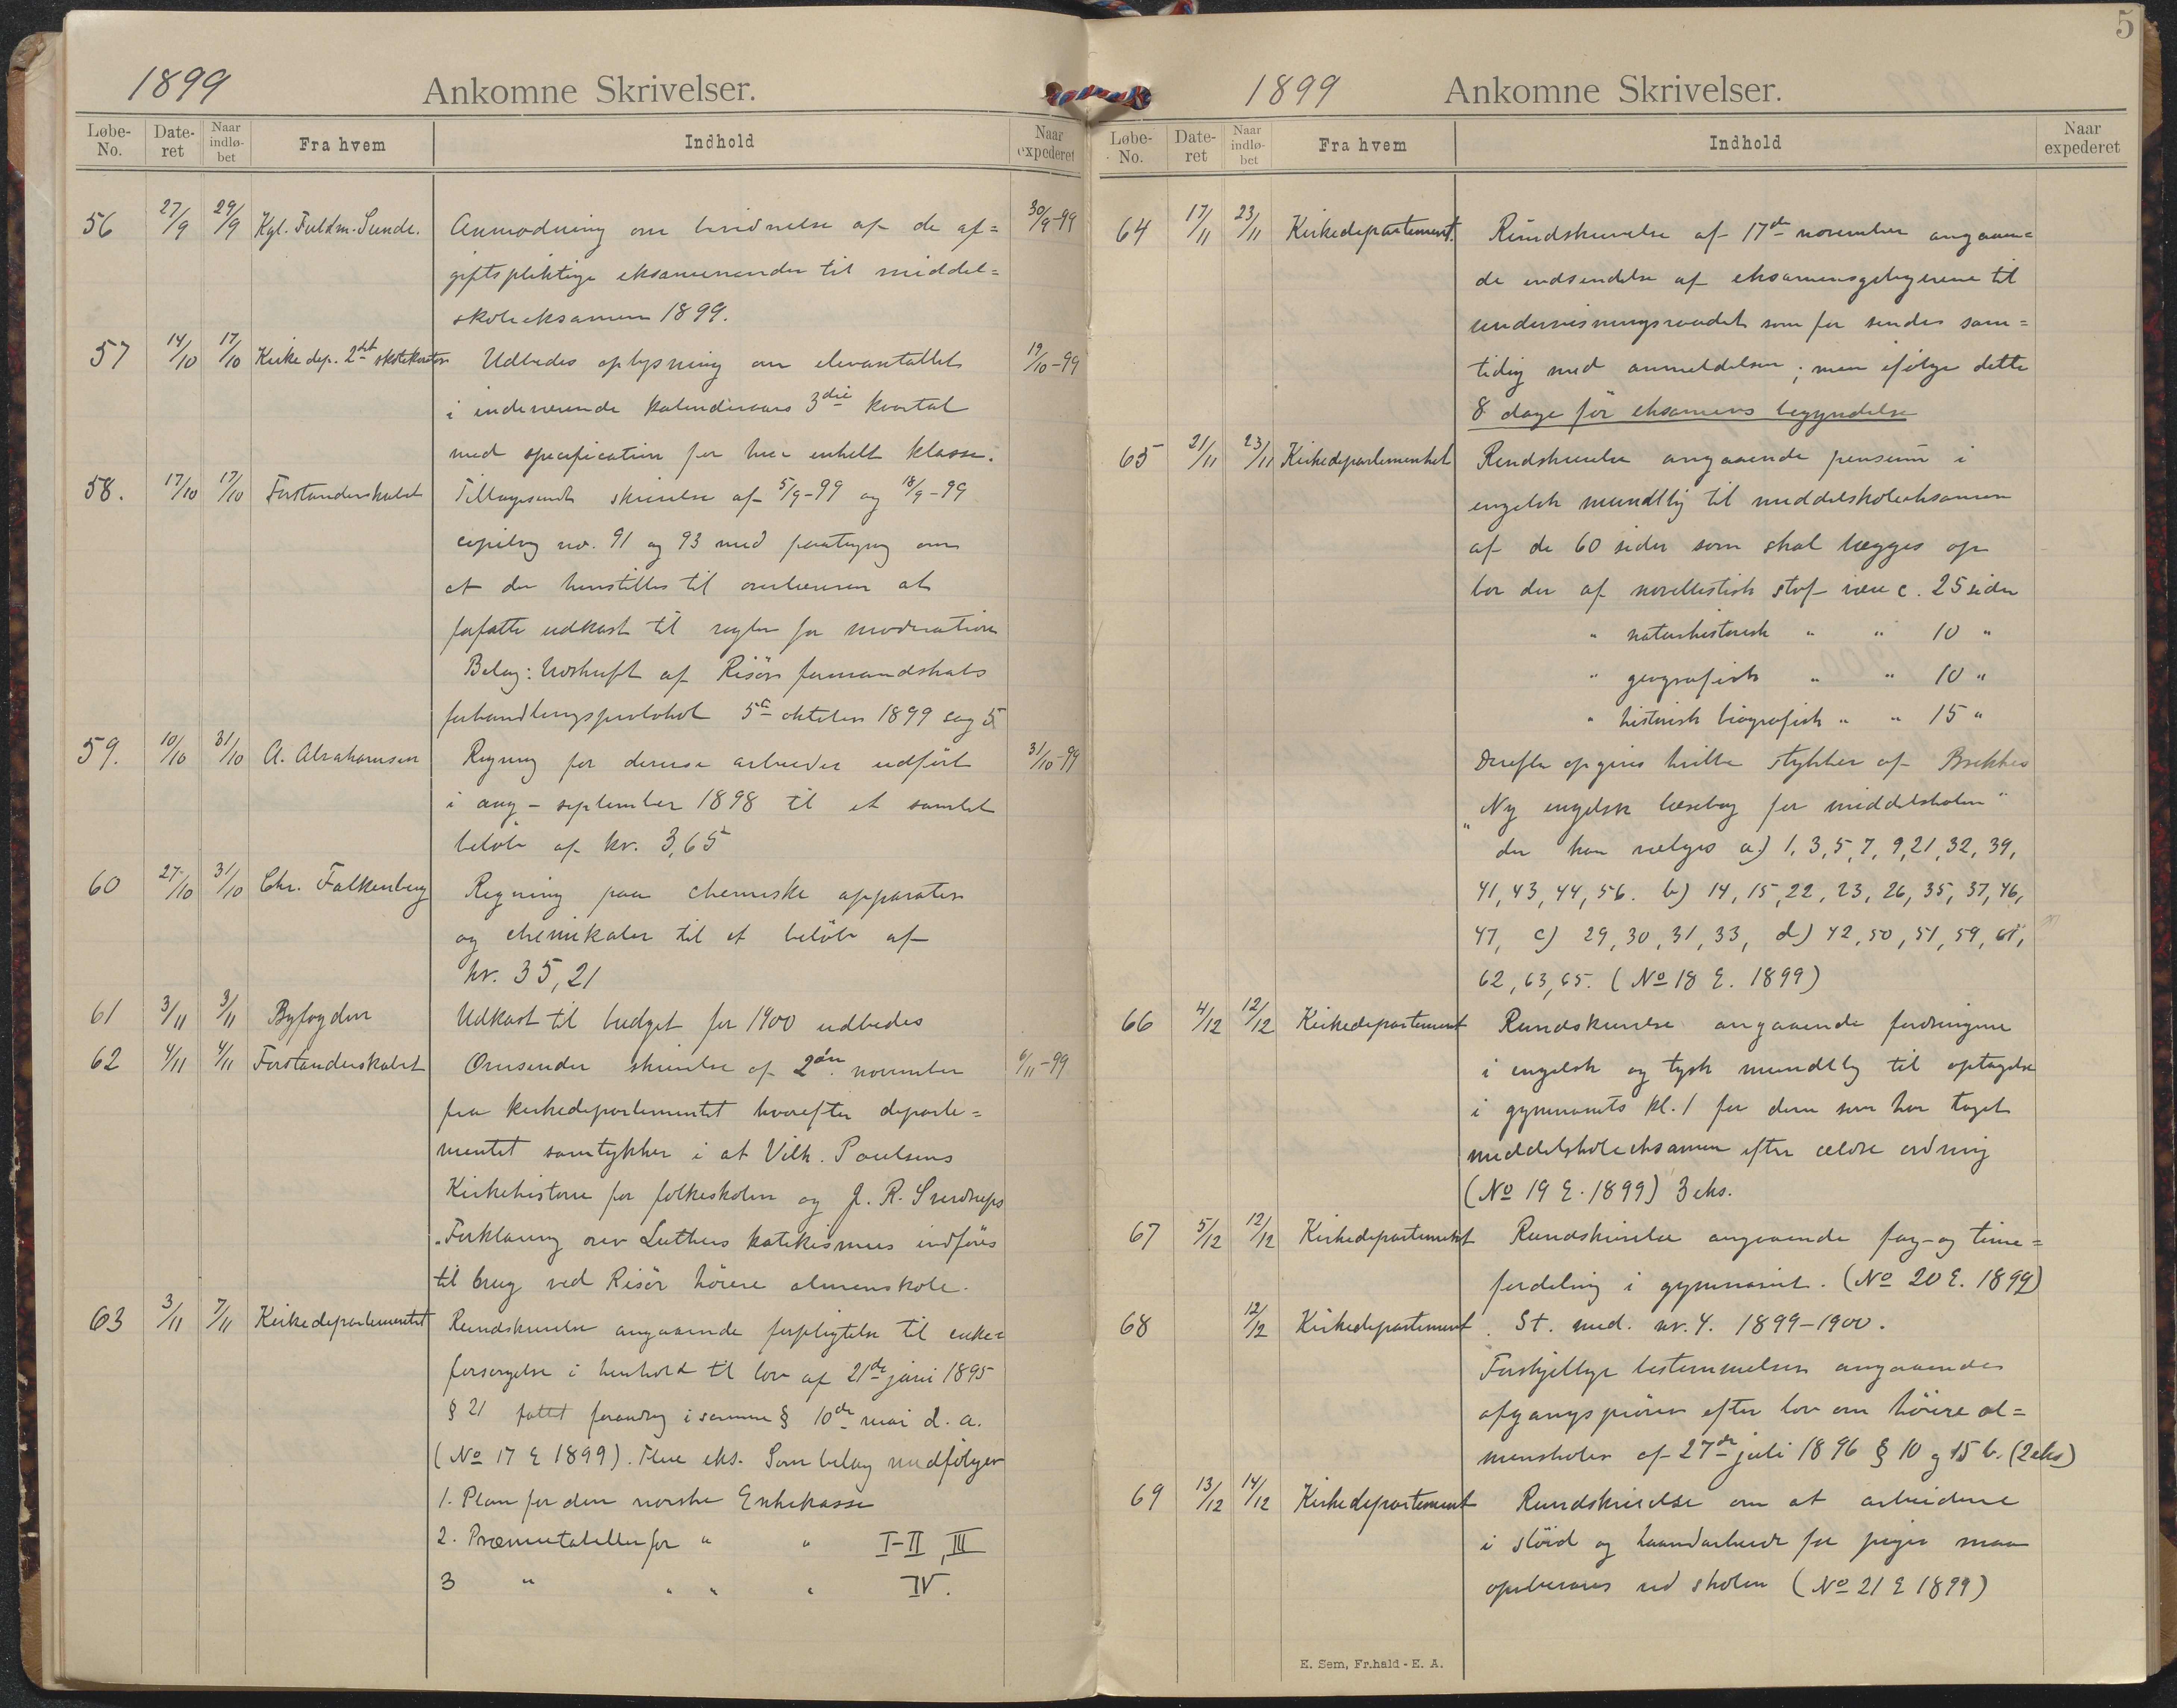 1899 Ankomne Skrivelser.
Løbe-No. Dateret Naar indløbet Fra hvem Indhold Naar expederet
56 27/9 29/9 Kgl. Fuldm. Sunde. Anmodning om af de af= 30/9-99
giftspliktige eksaminander til middel=
skoleeksamen 1899.
57 14/10 17/10 Kirkedep. 2det skolekontor Udbedes oplysning om elevantallet 19/10-99
i indeværende kalenderaars 3die kvartal
med specification for hver enkelt klasse.
58. 17/10 17/10 Forstanderskabet Tilbagesendt skrivelse af 5/9-99 og 18/9-99
copibog no. 91 og 93 med paategng om
at der henstilles til overlæreren at
forfatte udkast til regler for moderation
Belag: Udskrift af Risør formandskabs
forhandlingsprotokol 5te oktober 1899 sag 5
59. 10/10 31/10 A. Abrahamsen Regning for diverse arbeider udført 31/10-99
i aug - september 1898 til et samlet
beløb af kr. 3,65
60 27/10 31/10 Chr. Falkenberg Regning paa chemiske apparater
og chemikaler til et beløb af
kr. 35,21
61 3/11 3/11 Byfogden Udkast til budget for 1900 udbedes
62 4/11 4/11 Forstanderskabet Omsender skrivelse af 2den november 6/11-99
fra kirkedepartementet hvorefter departe=
mentet samtykker i at Vilh. Poulsens
Kirkehistorie for folkeskolen og J. R. Sverdrups
"Forklaring over Luthers katekismus indføres
til brug ved Risør höiere almenskole.
63 3/11 7/11 Kirkedepartementet Rundskrivelse angaaende forpligtelse til enke=
forsørgelse i henhold til lov af 21de juni 1895
§ 21 forandrg i samme § 10de mai d. a.
(No 17 E 1899). Flere eks. Som belag medfølger
1. Plan for den norske Enkekasse
2. Præmietabeller for " " I-II, III
3 " " " " IV.
5
1899 Ankomne Skrivelser.
Løbe-No. Dateret Naar indløbet Fra hvem Indhold Naar expederet
64 17/11 23/11 Kirkedepartement. Rundskrivelse af 17de november angaaen=
de indsendelse af eksamensgebyrerne til
undervisningsraadet som før sendes sam=
tidig med anmeldelsen; men ifølge dette
8 dage før eksamens begyndelse
65 21/11 23/11 Kirkedepartementet Rundskrivelse angaaende pensum i
engelsk mundtlig til middelskoleeksamen
af de 60 sider som skal lægges op
bør der af novellistisk stof være c. 25 sider
" naturhistorisk " " 10 "
" geografisk " " 10 "
" historisk biografisk " " 15 "
Derefter opgives hvilke stykker af Brekkes
"Ny engelsk læsebog for middelskolen"
der kan vælges a) 1, 3, 5, 7, 9, 21, 32, 39,
41, 43, 44, 56. b) 14, 15, 22, 23, 26, 35, 37, 46,
47, c) 29, 30, 31, 33, d) 42, 50, 51, 59, 61,
62, 63, 65. (No 18 E. 1899)
66 4/12 12/12 Kirkedepartement Rundskrivelse angaaende fordringerne
i engelsk og tysk mundtlig til optagelse
i gymnasiets kl. 1 for dem som har taget
middelskoleeksamen efter ældre ordning
(No 19 E. 1899) 3 eks.
67 5/12 12/12 Kirkedepartementet Rundskrivelse angaaende fag- og time=
fordeling i gymnasiet. (No 20 E. 1899)
68 12/12 Kirkedepartement. St. med. nr. 4. 1899-1900.
Forskjellige bestemmelser angaaende
afgangsprøver efter lov om höiere al=
menskoler af 27de juli 1896 § 10 og 15 b. (2 eks)
69 13/12 14/12 Kirkedepartement Rundskrivelse om at arbeidene
i sløid og haandarbeide for piger maa
opbevares ved skolen (No 21 E 1899)
E. Sem, Fr.hald - E. A.